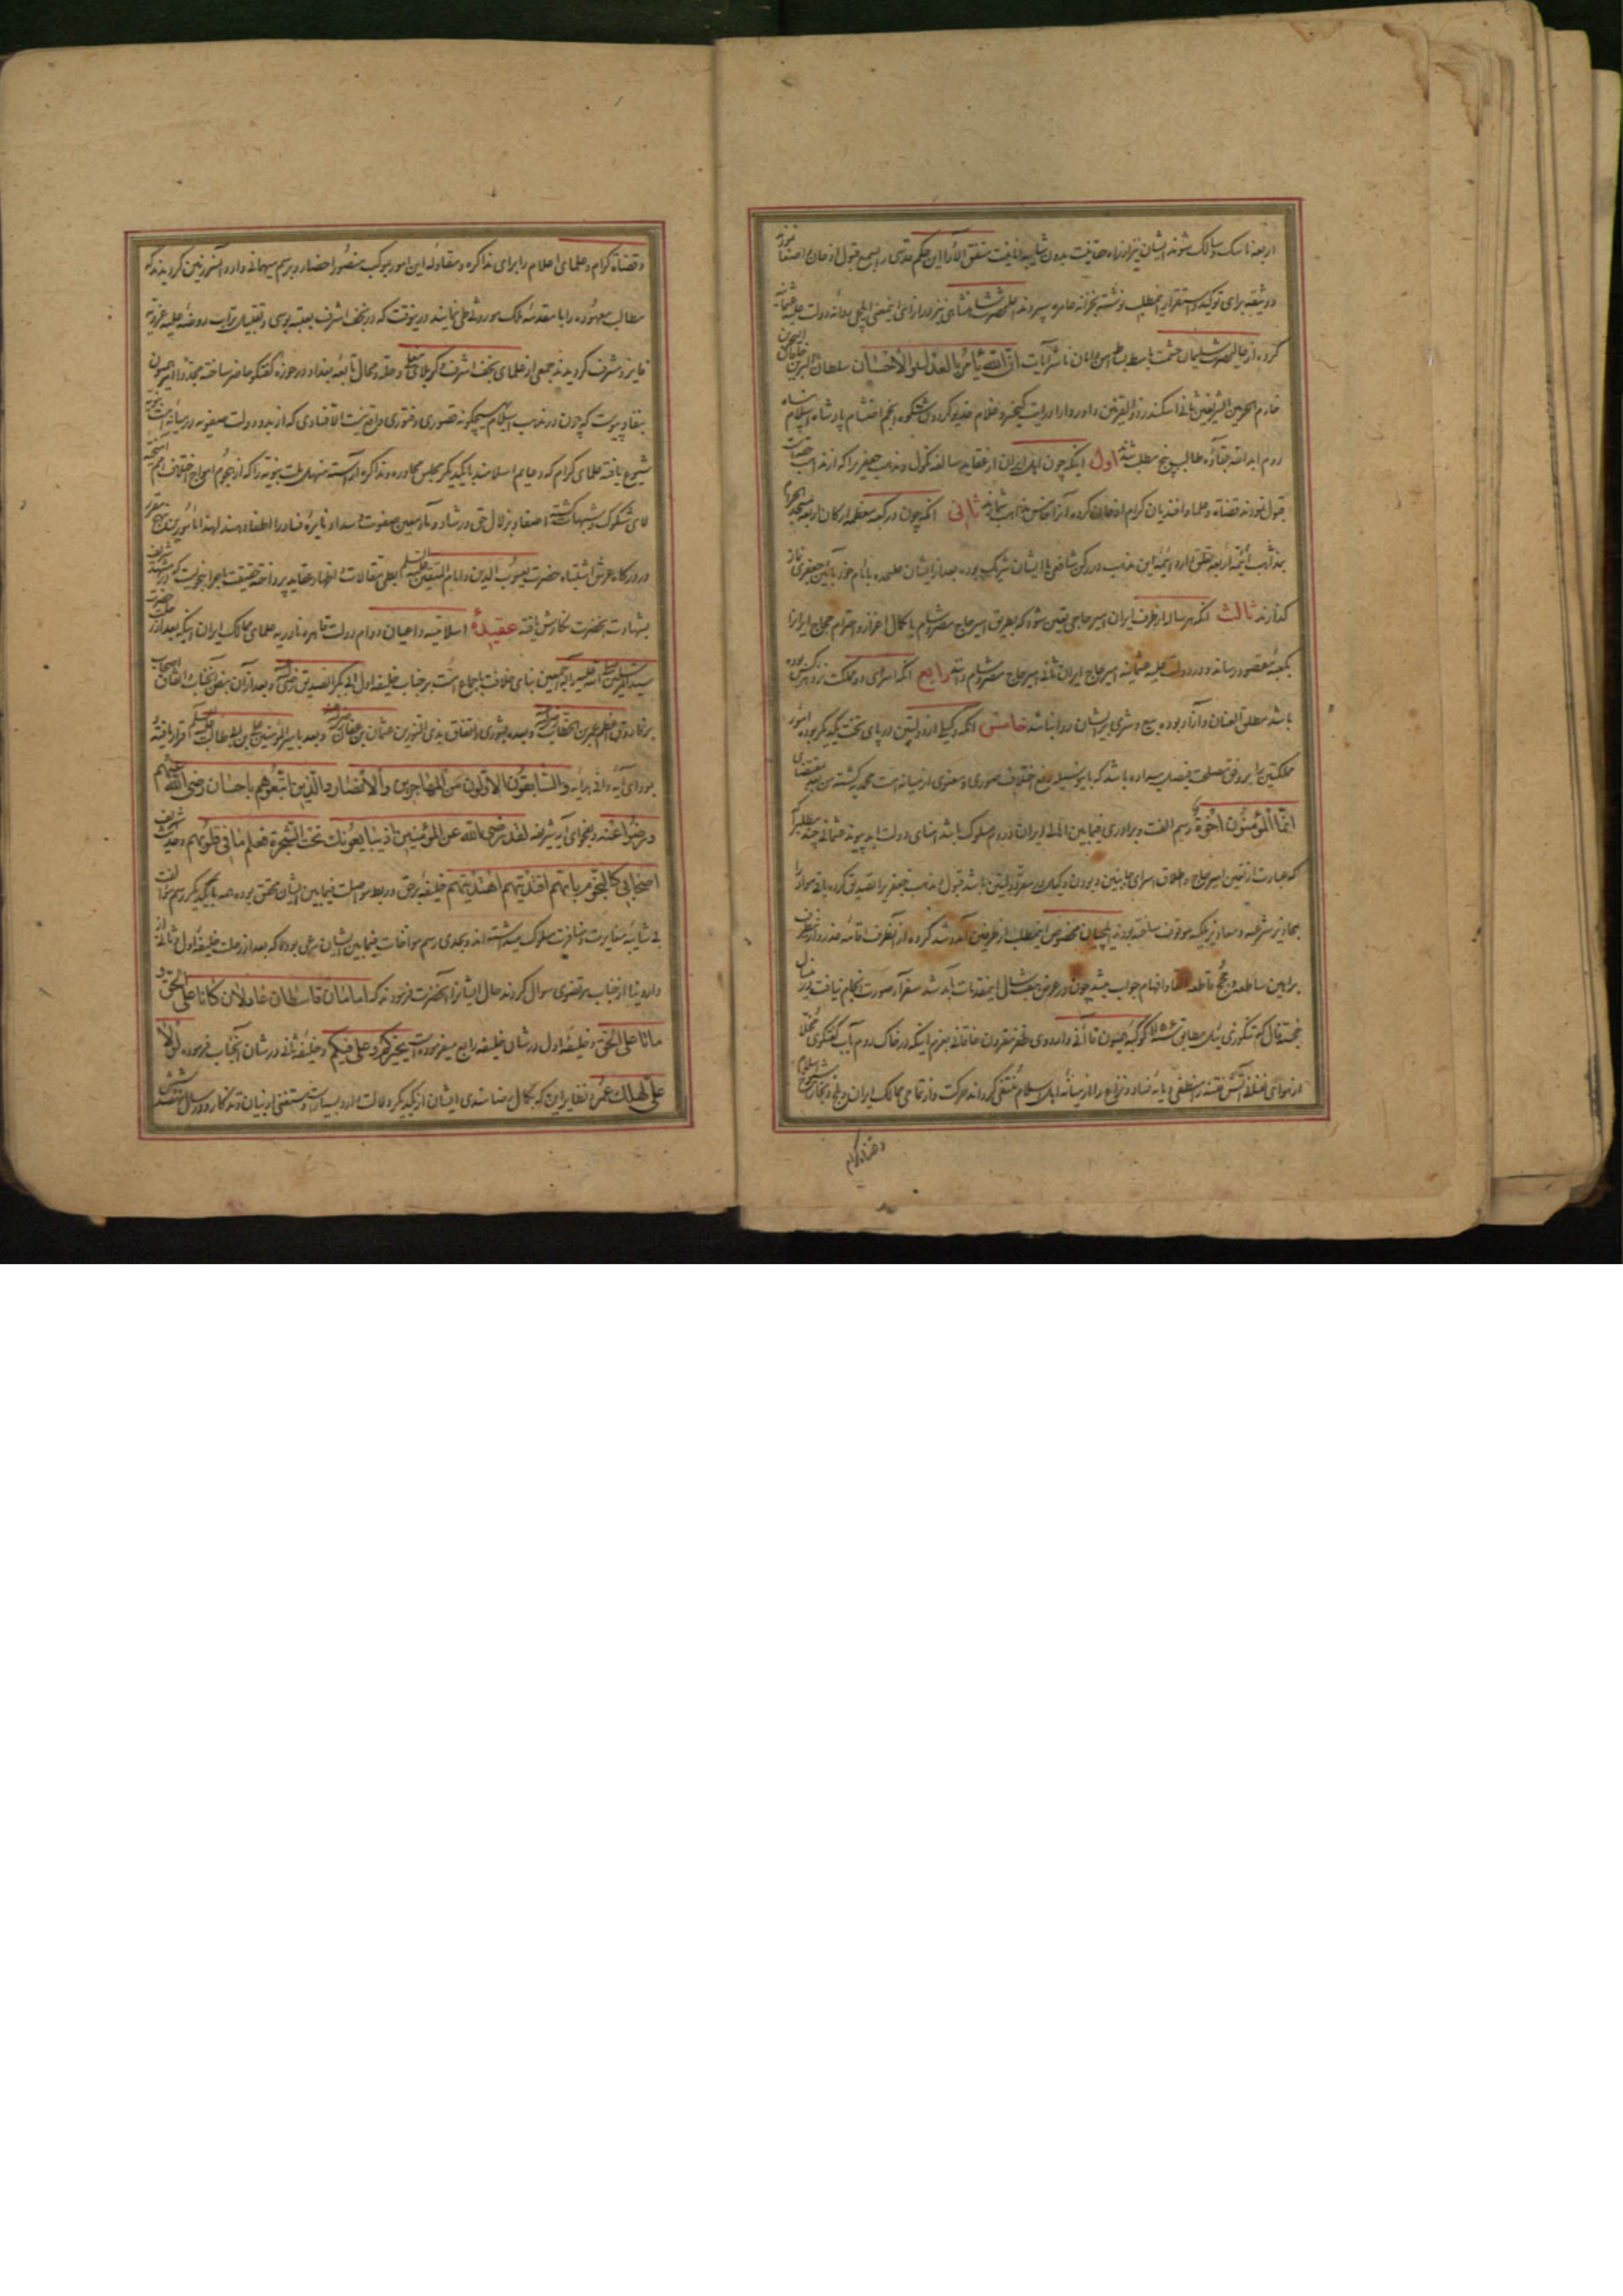 اربعه ناسک و سالک شوند ایشان نیز از راه حقانیت بدون شایبه نفسانیت متفق الآرا این حکم قدسی را بسمع قبول اذعان اصغا نموده
وثیقه برای توکید و استقرار اینمطلب نوشته بخزانه عامره سپردند اعلیحضرت شاهنشاهی نیز در ازای اینمعنی ایلچی روانه دولت علیه عثمانیه
کرده از اعلیحضرت سلیمان حشمت باسط بساط امن و امان ناشر آیات ان الله یأمر بالعدل والاحسان سلطان البرین خاقان البحرین
خادم الحرمین الشریفین ثانی اسکندر ذوالقرنین داور دارا درایت کیخسرو غلام خدیو گردون شکوه انجم احتشام پادشاه اسلام پناه
روم ابد الله بقاؤه طالب پنج مطلب شدند اول اینکه چون اهل ایران از عقاید سالفه نکول و مذهب جعفری را که از مذاهب حقه است
قبول نمودند قضاة و علما و افندیان کرام اذعان کرده آنرا خامس مذاهب شمارند ثانی آنکه چون در کعبه معظمه ارکان اربعه مسجد الحرام
بمذاهب ائمه اربعه تعلق دارد ائمه این مذهب در رکن شافعی با ایشان شریک بوده بعد از ایشان علیحده با امام خود بآیین جعفری نماز
گذارند ثالث آنکه هر ساله از طرف ایران امیر حاجی تعیین شود که بطریق امیر حاج مصر و شام با کمال اعزاز و احترام حجاج ایران را
بکعبه مقصود رسانده و در دولت علیه عثمانیه امیر حاج ایران ثانی امیر حاج مصر و شام دانند رابع آنکه اسرای دو مملکت نزد هر کس بوده
باشد مطلق العنان و آزاد بوده بیع و شری بر ایشان روا نباشد خامس آنکه وکیلی از دولتین در پای تخت یکدیگر بوده امور
مملکتین را بر وفق مصلحت فیصل میداده باشد که باینوسیله رفع اختلاف صوری و معنوی از میانه امت محمدیه گشته من بعد بمقتضای
انما المؤمنون اخوة رسم الفت و برادری فیمابین اهالی ایران و روم مسلوک باشد امنای دولت ابد پیوند عثمانی چند مطلب را
که عبارت از تعیین امیر حاج و اطلاق اسرای جانبین و بودن وکیل در مقر دولتین باشد قبول و مذهب جعفری را تصدیق کرده باقی مواد را
بمحاذیر شرعیه و معاذیر ملکیه موقوف ساخته بودند ایلچیان بخصوص اینمطلب از طرفین آمد و شد کرده از آنطرف اقامه عذر و از اینطرف
براهین ساطعه و حجج قاطعه القا و افهام جواب میشد چون در عرض هفت سال اینمقدمات بآمد شد سفرا صورت انجام نیافت در سال
خجسته فال تنکوزییل مطابق سنه ۱۱۵۶ کوکبه همایون قاآنی و اردوی ظفرنمون خاقانی بعزم اینکه در خاک روم آب گفتگوی مجملا
از هوای نفس آتش فتنه را منطفی و مایه فساد و نزاع را از میانه اهل اسلام منتفی گردانند حرکت و از تمامی ممالک ایران و بلخ و بخارا شیخ الاسلام
وقضاة کرام
وقضاة کرام و علمای اعلام را برای مذاکره و مقاوله این امور بموکب منصور احضار و برسم میهمانی وارد آنسرزمین گردیدند که
مطالب معهوده را با مقدمه ملک موروثی طی نمایند درینوقت که در نجف اشرف بعتبه بوسی و تقبیل تراب روضه علیه غرویه
فایز و مشرف گردیدند جمعی از علمای نجف اشرف و کربلای معلی و حله و محال تابعه بغداد در حوزه گفتگو حاضر ساخته مجددا امر همیون
بنفاذ پیوست که چون در مذهب اسلام هیچگونه قصوری و فتوری واقع نیست الا فسادی که از بدو دولت صفویه در میانه امت
شیوع یافته علمای کرام که دعایم اسلامند با یکدیگر مجلس محاوره و مذاکره آراسته منهل ملت نبویه را که از هجوم امواج اختلاف امم
لای شکوک و شبهات گشته اصفا و بزلال حق و رشاد و ماء معین صفوت و سداد نایره فساد را اطفا دهند لهذا
در درگاه عرش اشتباه حضرت یعسوب الدین و امام المتقین علیه السلام بطی مقالات و اظهار عقاید پرداخته حقیقت ماجرا بنحویست که در مشهد شریف
بشهادت آنحضرت نگارش یافته عقیده اسلامیه داعیان دوام دولت قاهره نادریه علمای ممالک ایران اینکه بعد از رحلت حضرت
سید المرسلین صلی الله علیه و آله اجمعین بنای خلافت باجماع امت بر جناب خلیفه اول ابی بکر الصدیق رضی و بعد از آن بنص آنجناب و اتفاق اصحاب
بر فاروق اعظم عمر بن الخطاب و بعد بشوری و اتفاق بذی النورین عثمان بن عفان و بعد بامیر المؤمنین علی بن ابیطالب قرار یافته
بمؤدای آیه وافی هدایه والسابقون الاولون من المهاجرین والانصار والذین اتبعوهم باحسان رضی الله عنهم
ورضوا عنه و بفحوای آیه شریفه لقد رضی الله عن المؤمنین اذ یبایعونک تحت الشجرة فعلم ما فی قلوبهم و حدیث شریف
اصحابی کالنجوم بایهم اقتدیتم اهتدیتم خلیفه برحق و ربط مواصلت فیمابین ایشان متحقق بوده همه با یکدیگر رسم موالفت
بی شایبه مغایرت و منافرت مسلوک میداشته اند و بحدی رسم مواخات فیمابین ایشان مرعی بوده که بعد از رحلت خلیفه اول و ثانی از
دار دنیا از جناب مرتضوی سوال کردند حال ایشانرا آنحضرت فرمودند که امامان قاسطان عادلان کانا علی الحق و
ماتا علی الحق و خلیفه اول در شان خلیفه رابع میفرموده لست بخیرکم و علی فیکم و خلیفه ثانی در شان آنجناب فرموده لولا
علی لهلک عمر و نظایر این که بکمال رضامندی ایشان از یکدیگر دلالت دارد بسیار و مستغنی از بیان و تذکار و در سال